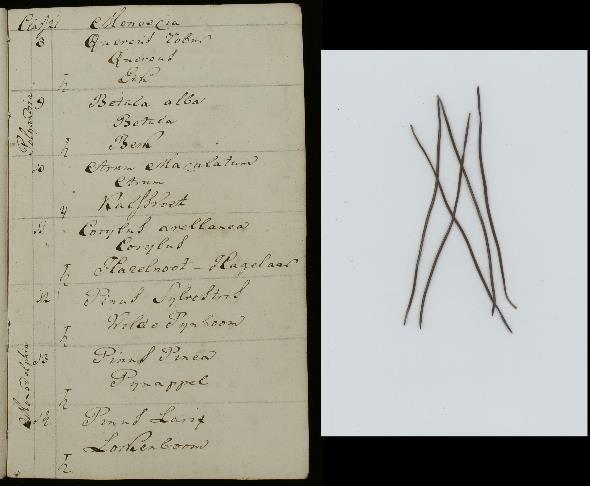 Monoecia
8 Quercus Robur
Quercus
Eik
9 Betula alba
Betula
Berk
10 Arum Maculatum
Arum
Kalfsvoet
11 Corylus avellanea
Corylus
Hazelnoot - Hazelaar
12 Pinus Sylvestris
Wilde Pynboom
13 Pinus Pinea
Pynappel
14 Pinus Larix
Lorkenboom